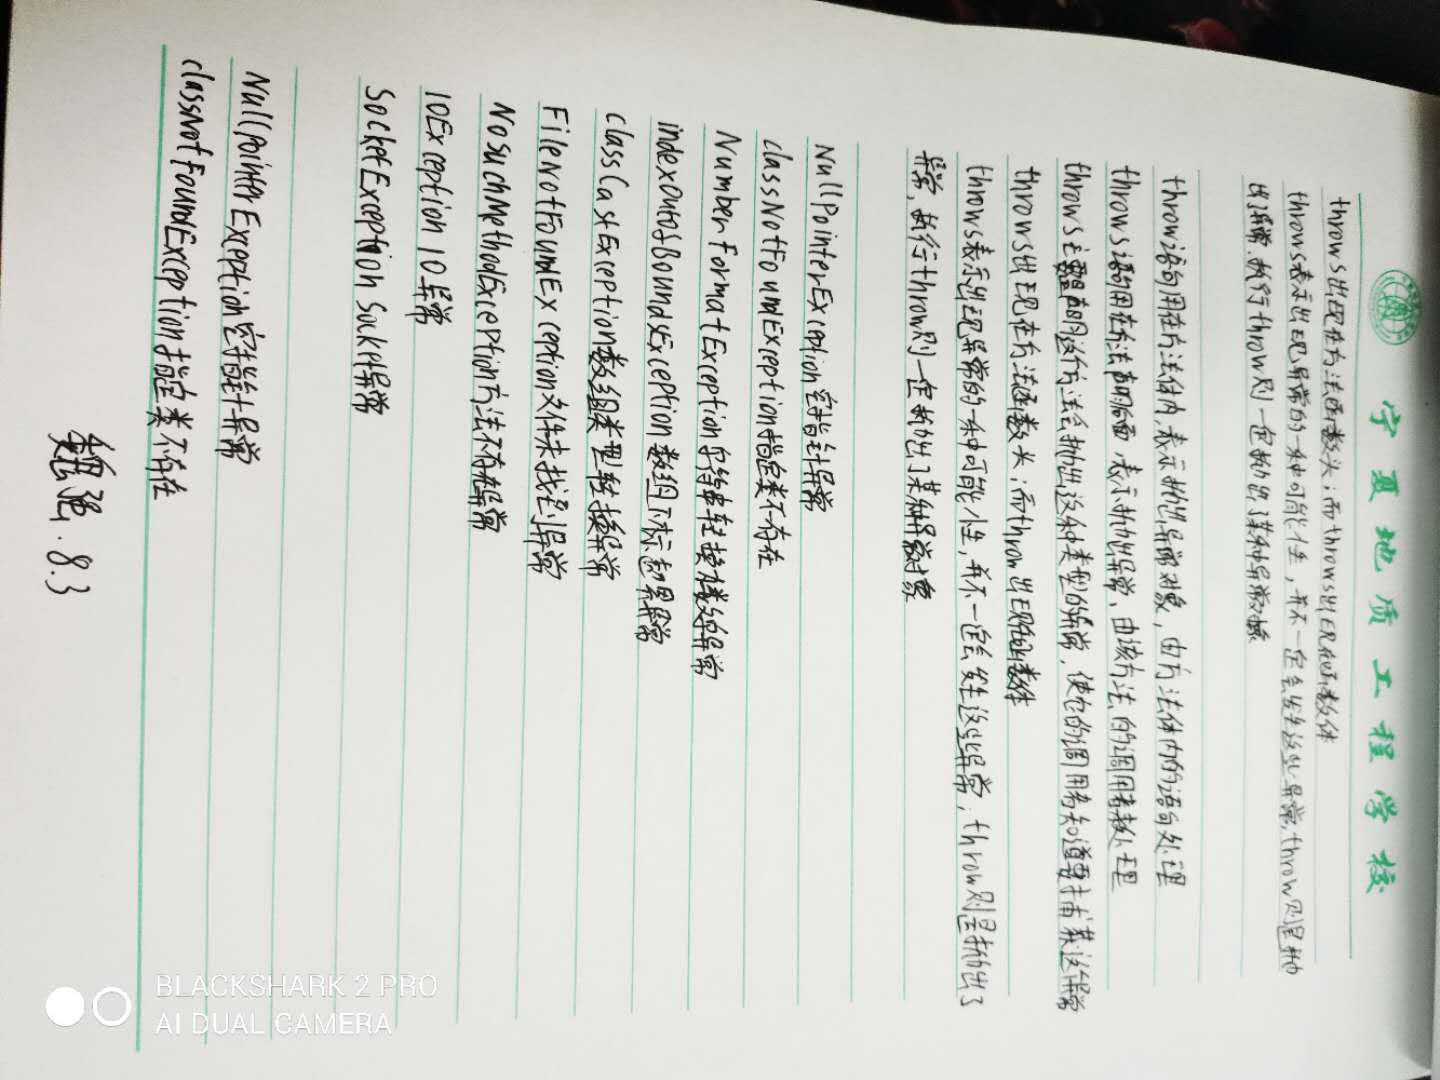 宁夏地质工程学校
throws出现在方法函数头；而throws出现在函数体
throws表示出现异常的一种可能性，并不一定会发生这些异常，throw则是抛
出了异常，执行throw则一定抛出了某种异常对象
throw语句用在方法体内，表示抛出异常对象，由方法体内的语句处理
throws语句用在方法声明后面，表示抛出异常，由该方法的调用者来处理
throws主要声明这个方法会抛出这种类型的异常，使它的调用者知道要捕获这个异常
throws出现在方法函数头；而throw出现在函数体
throws表示出现异常的一种可能性，并不一定会发生这些异常，throw则是抛出了
异常，执行throw则一定抛出了某种异常对象
NullPointerException空指针异常
classNotFoundException指定类不存在
NumberFormatException字符串转换为数字异常
indexOutOfBoundsException数组下标越界异常
classCastException数组类型转换异常
FileNotFoundException文件未找到异常
NoSuchMethodException方法不存在异常
IOException IO异常
SocketException Socket异常
NullPointerException空指针异常
classNotFoundException指定类不存在
魏强. 8.3
BLACKSHARK 2 PRO
AI DUAL CAMERA